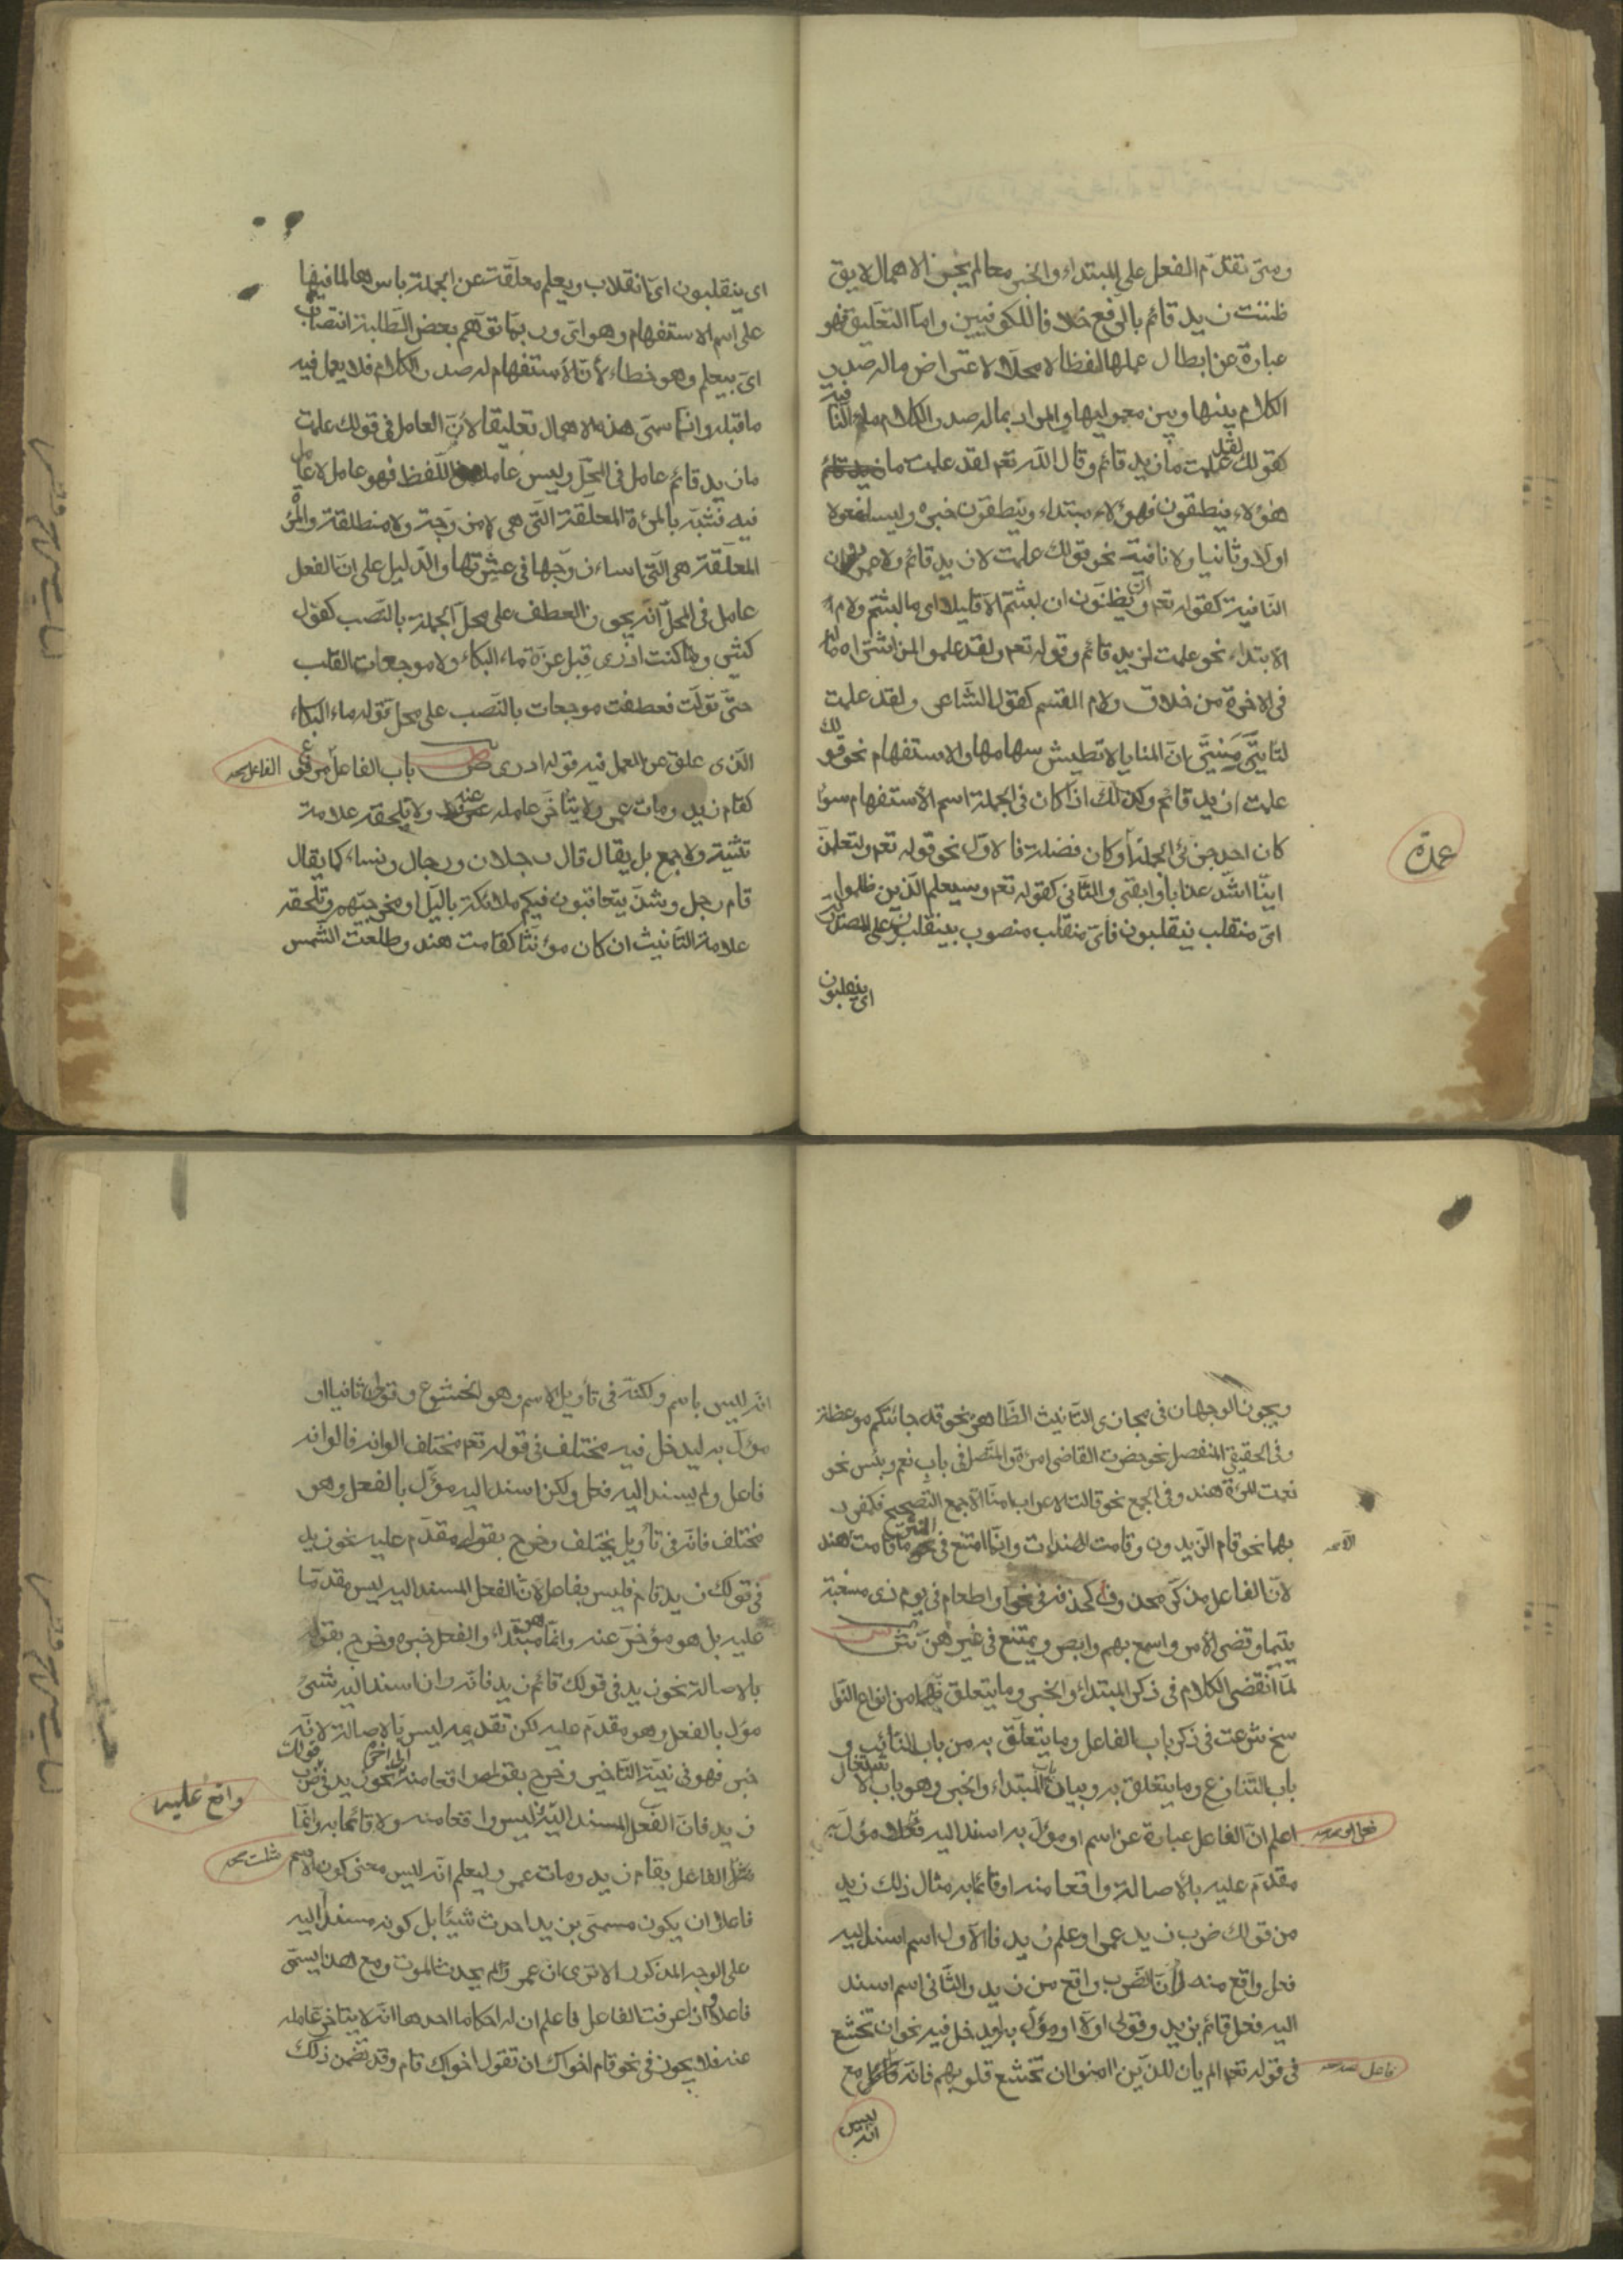 ومتى تقدّم الفعل على المبتداء والخبر معا لم يجز الاهمال لا يق
ظننت زيد قائم بالرّفع خلافا للكوفيين وامّا التعليق فهو
عبارة عن ابطال عملها لفظا لا محلّا لاعتراض ماله صدر
الكلام بينها وبين معموليها والمراد بماله صدر الكلام ما النّا
فيه
كقولك علمت ما زيد قائم وقال الله تعم لقد علمت ما
لقد
هؤلاء ينطقون فهؤلاء مبتداء وينطقون خبره وليسا مفعولا
اولا وثانيا ولا نافية نحو قولك علمت لا زيد قائم ولا عمرو وان
النّافية كقوله تعم وتظنّون ان لبثتم الّا قليلا اى ما لبثتم ولام
الابتداء نحو علمت لزيد قائم وقوله تعم ولقد علموا لمن اشتراه ماله
فى الاخرة من خلاق ولام القسم كقول الشّاعر ولقد علمت
لتاتينّ منيّتى انّ المنايا لا تطيش سهامها والاستفهام نحو قو
لك
علمت ازيد قائم وكذلك اذا كان فى الجملة اسم الاستفهام سوا
كان احد جزئى الجملة او كان فضلة فالاوّل نحو قوله تعم ولتعلمنّ
عمدة
ايّنا اشدّ عذابا وابقى والثّانى كقوله تعم وسيعلم الّذين ظلموا
اىّ منقلب ينقلبون فاىّ منقلب منصوب بينقلبون على المصدريّة
اى ينقلبون
اى ينقلبون اىّ انقلاب ويعلم معلّقة عن الجملة باسرها لما فيها
على اسم الاستفهام وهو اىّ وربّما توّهم بعض الطّلبة انتصاب
اىّ بيعلم وهو خطاء لأنّ الأستفهام له صدر الكلام فلا يعمل فيه
ما قبله وانّما سمّى هذه الاهمال تعليقا لأنّ العامل فى قولك علمت
ما زيد قائم عامل فى المحلّ وليس عاملا اللّفظ فهو عامل لا عامل
فيه فشبّه بالمرءة المعلّقة الّتى هى لا مزوّجة ولا منطلقة والمرء
المعلّقة هى الّتى اساء زوجها فى عشرتها والدّليل على انّ الفعل
عامل فى المحلّ انّه يجوز العطف على محلّ الجملة بالنّصب كقول
كثير وما كنت ادرى قبل عزّة ما البكاء ولا موجعات القلب
حتّى تولّت فعطفت موجعات بالنّصب على محلّ قوله ما البكاء
الّذى علّق عن العمل فيه قوله ادرى ص باب الفاعل مرفوع
الفاعل
كقام زيد ومات عمرو ولا يتأخّر عامله عنه ولا يلحقه علامة
تثنية ولا جمع بل يقال قال رجلان ورجال ونساء كما يقال
قام رجل وشذّ يتعاقبون فيكم ملائكة باللّيل او مخرجىّهم وتلحقه
علامة التّانيث ان كان مؤنّثا كقامت هند وطلعت الشّمس
ويجوز الوجهان فى مجازى التّانيث الظّاهر نحو قد جائتكم موعظة
وفى الحقيقى المنفصل نحو حضرت القاضى امرءة والمتّصل فى باب نعم وبئس نحو
نعمت المرءة هند وفى الجمع نحو قالت الاعراب امنّا الّا جمع التّصحيح فكمفرد
بهما نحو قام الزّيدون وقامت الهندات وانّما امتنع فى النّثر ما قامت الّا هند
لانّ الفاعل مذكّر محذوف كحذفه فى نحو او اطعام فى يوم ذى مسغبة
يتيما وقضى الأمر واسمع بهم وابصر ويمتنع فى غيرهنّ ش
لمّا انقضى الكلام فى ذكر المبتداء والخبر وما يتعلّق بهما من انواع النّوا
سخ شرعت فى ذكر باب الفاعل وما يتعلّق به من باب النّائب و
باب التّنازع وما يتعلّق به وبيان باب المبتداء والخبر وهو باب لا
شتغال
اعلم انّ الفاعل عبارة عن اسم او مؤل به اسند اليه فعل او مؤل به
مقدّم عليه بالاصالة واقعا منه او قائما به مثال ذلك زيد
من قولك ضرب زيد عمروا وعلم زيد فالاوّل اسم اسند اليه
فعل واقع منه لأنّ الضّرب واقع من زيد والثّانى اسم اسند
اليه فعل قائم بزيد وقولى اوّلا او مؤل به ليدخل فيه نحو ان تخشع
فى قوله تعم الم يان للّذين امنوا ان تخشع قلوبهم فانّه فاعل مع
فاعل
انه ليس
انّه ليس باسم ولكنّه فى تأويل الاسم وهو الخشوع وقولى ثانيا او
مؤل به ليدخل فيه مختلف فى قوله تعم مختلف الوانه فالوانه
فاعل ولم يسند اليه فعل ولكن اسند اليه مؤّل بالفعل وهو
مختلف فانّه فى تأويل يختلف وخرج بقولى مقدّم عليه نحو زيد
فى قولك زيد قام فليس بفاعل لأنّ الفعل المسند اليه ليس مقدّما
عليه بل هو مؤخّر عنه وانّما هو مبتداء والفعل خبره وخرج بقولى
بالاصالة نحو زيد فى قولك قائم زيد فانّه وان اسند اليه شىء
مؤل بالفعل وهو مقدّم عليه لكن تقديمه ليس بالاصالة لانّه
خبر فهو فى نيّة التّاخير وخرج بقولى واقعا منه الى اخره نحو زيد فى قولك ضرب
زيد فانّ الفعل المسند اليه ليس واقعا منه ولا قائما به وانّما
واقع عليه
مثّلت الفاعل بقام زيد ومات عمرو ليعلم انّه ليس معنى كون الاسم
فاعلا ان يكون مسمّى بن يد احدث شيئا بل كونه مسندا اليه
على الوجه المذكور الا ترى ان عمروا لم يحدث الموت ومع هذا يسمّى
فاعلا واذا عرفت الفاعل فاعلم ان له احكاما احدها انّه لا يتاخّر عامله
عنه فلا يجوز فى نحو قام اخواك ان تقول اخواك قام وقد تضمّن ذلك